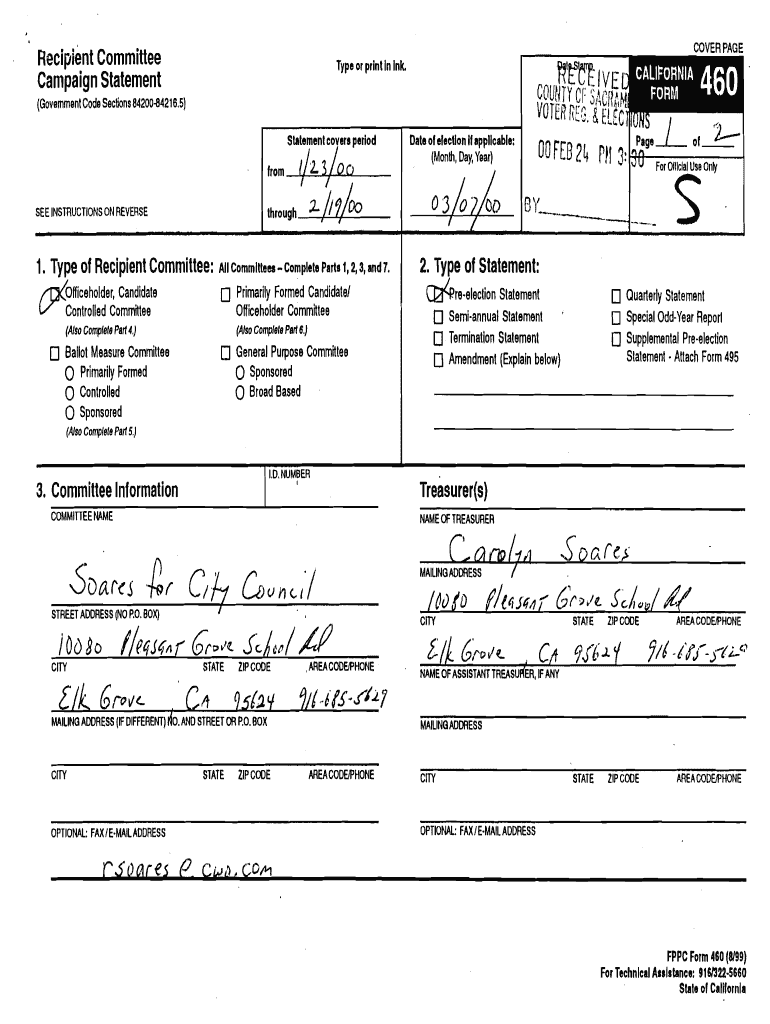 COVER PAGE
Recipient Committee
Campaign Statement
(Government Code Sections 84200-84216.5)
Type or print in ink.
Date Stamp
RECEIVED
COUNTY OF SACRAM
VOTER REG. & ELECTIONS
00 FEB 24 PM 3:30
BY
CALIFORNIA
FORM 460
Page 1 of 2
For Official Use Only
S
Statement covers period
from 1/23/00
through 2/19/00
Date of election if applicable:
(Month, Day, Year)
03/07/00
SEE INSTRUCTIONS ON REVERSE
1. Type of Recipient Committee: All Committees – Complete Parts 1, 2, 3, and 7.
Officeholder, Candidate
Controlled Committee
(Also Complete Part 4.)
Ballot Measure Committee
Primarily Formed
Controlled
Sponsored
(Also Complete Part 5.)
Primarily Formed Candidate/
Officeholder Committee
(Also Complete Part 6.)
General Purpose Committee
Sponsored
Broad Based
2. Type of Statement:
Pre-election Statement
Semi-annual Statement
Termination Statement
Amendment (Explain below)
Quarterly Statement
Special Odd-Year Report
Supplemental Pre-election
Statement - Attach Form 495
3. Committee Information
I.D. NUMBER
COMMITTEE NAME
Soares for City Council
STREET ADDRESS (NO P.O. BOX)
10080 Pleasant Grove School Rd
CITY STATE ZIP CODE AREA CODE/PHONE
Elk Grove, CA 95624 916-685-5629
MAILING ADDRESS (IF DIFFERENT) NO. AND STREET OR P.O. BOX
CITY STATE ZIP CODE AREA CODE/PHONE
OPTIONAL: FAX / E-MAIL ADDRESS
rsoares@cwo.com
Treasurer(s)
NAME OF TREASURER
Carolyn Soares
MAILING ADDRESS
10080 Pleasant Grove School Rd
CITY STATE ZIP CODE AREA CODE/PHONE
Elk Grove, CA 95624
NAME OF ASSISTANT TREASURER, IF ANY
MAILING ADDRESS
CITY STATE ZIP CODE AREA CODE/PHONE
OPTIONAL: FAX / E-MAIL ADDRESS
FPPC Form 460 (8/99)
For Technical Assistance: 916/322-5660
State of California